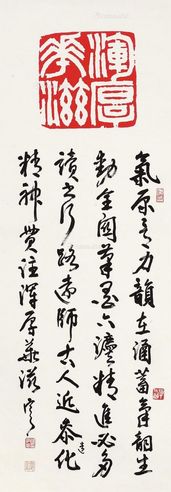 渾厚
華滋
氣原于力韻在涵蓄氣韻生
動全關筆墨六灋精進必多
讀書行路遠師古人近參造化
精神貫注渾厚華滋